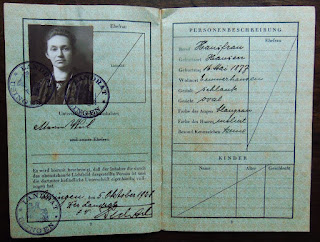 Ehefrau
Unterschrift des Paßinhabers
und seiner Ehefrau
Es wird hiermit bescheinigt, daß der Inhaber die durch
das obenstehende Lichtbild dargestellte Person ist und
die darunter befindliche Unterschrift eigenhändig voll-
zogen hat.
5. Oktober 1928
Der Landrat
LANDRAT
PERSONENBESCHREIBUNG
Ehefrau
Beruf Hausfrau
Geburtsort Hausen
Geburtstag 16. Mai 1877
Wohnort
Gestalt schlank
Gesicht oval
Farbe der Augen blaugrau
Farbe des Haares meliert
Besond. Kennzeichen Keine
KINDER
Name
Alter
Geschlecht